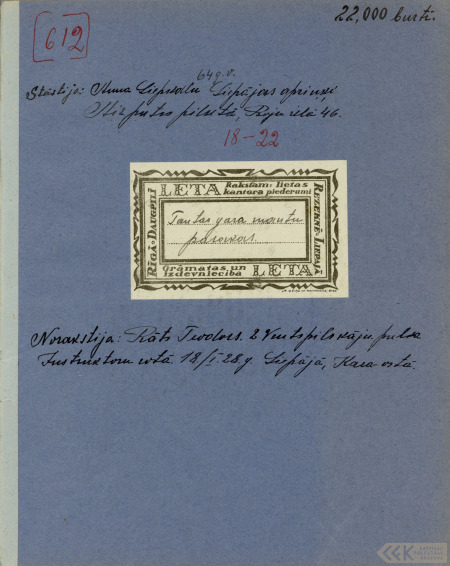 [612]
22,000 burti.
64 g. v.
Stāstīja: Anna Liepzāļu Liepājas apriņķī
Aizputes pilsētā, Riju ielā 46.
18-22
LETA Rakstam: lietas
kantora piederumi
RĪGĀ-DAUGPILĪ
REZEKNĒ-LIEPAJĀ
Tautas gara mantu
parawas
Grāmatas un
izdevniecība LETA
Norakstija: Rāts Teodors. 2 Ventspils kāju. pulka
Instruktoru rotā 18/I 28 g. Liepājā, Kara ostā.